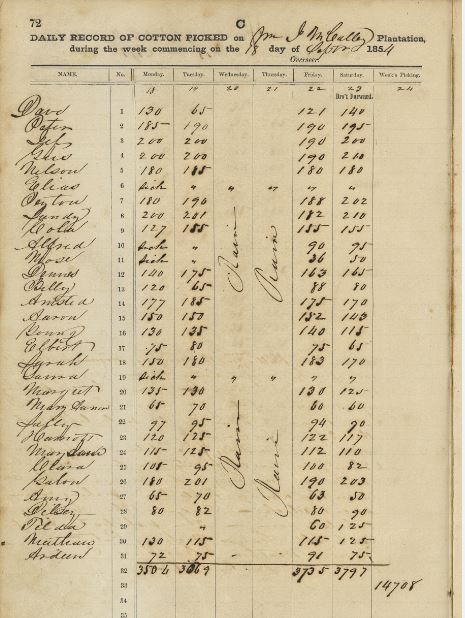 72 C
DAILY RECORD OF COTTON PICKED on Wm J Plantation,
during the week commencing on the 18 day of 1854
Overseer.
NAME. No. Monday. Tuesday. Wednesday. Thursday. Friday. Saturday. Week's Picking.
18 19 20 21 22 23 24
Bro't Forward.
Dave 1 130 65 121 140
2 185 190 190 195
3 200 200 190 200
4 200 200 190 210
Nelson 5 180 185 180 180
Elias 6 sick " " " " "
Peyton 7 180 190 188 202
Sandy 8 200 201 182 210
9 127 185 185 155
Alfred 10 sick " 90 95
Mose 11 sick " 36 50
Dennis 12 140 175 163 165
Billy 13 120 65 88 80
14 177 185 175 170
Aaron 15 150 150 152 143
Young 16 130 135 140 115
Elbert 17 75 80 75 65
Sarah 18 150 180 183 170
19 sick " " " " "
Margret 20 135 130 130 125
Mary 21 65 70 60 60
22 97 95 94 90
23 120 125 122 117
Mary 24 115 125 112 110
Clara 25 105 95 100 82
26 180 201 190 203
Amy 27 65 70 63 50
28 80 82 80 90
29 " 60 125
30 130 115 115 125
31 72 75 91 75
Rain Rain
Rain Rain
32 3504 3069 3735 3797
33 14708
34
35